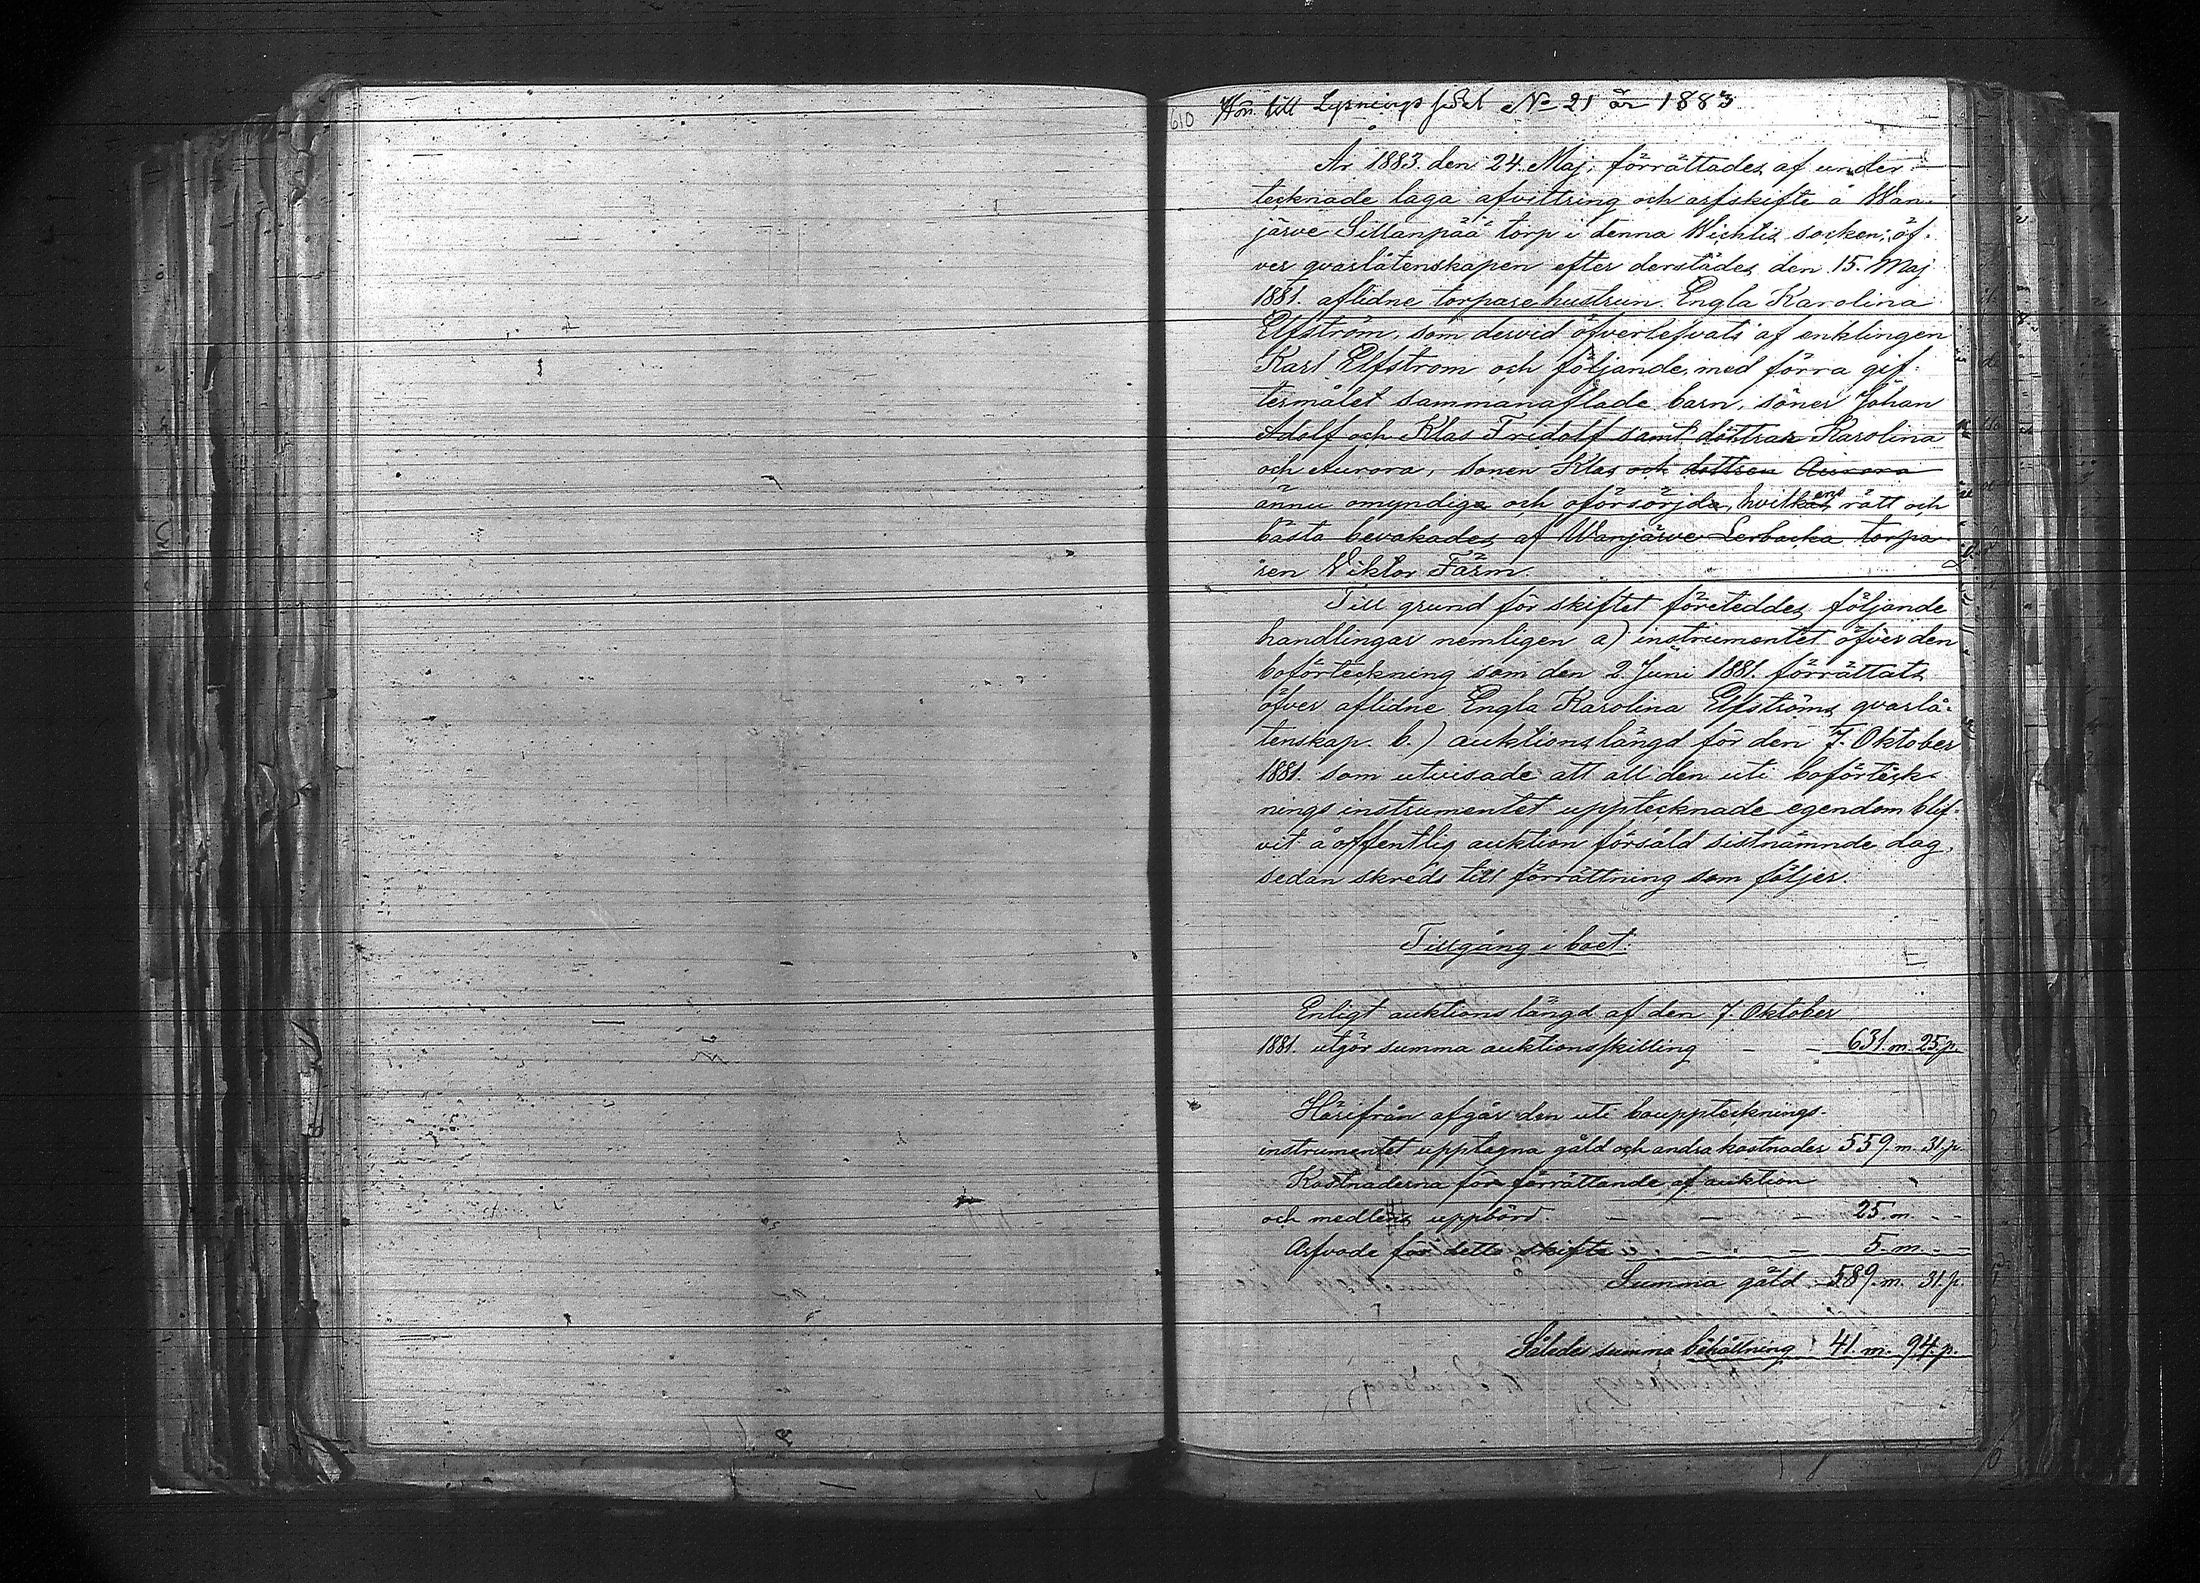 610
Hör till Lysnings fört No 21 år 1883
År 1883. den 24. Maj, förrättades af under-
tecknade laga afvittring och arfskifte å Wan-
järwe Sillanpää torp i denna Wichtis socken; öf-
ver qvarlåtenskapen efter derstädes den 15. Maj
1881. aflidne torparehustrun Engla Karolina
Elfström, som dervid öfverlefvats af enklingen
Karl Elfström och följande, med förra gif-
termålet sammanaflade barn, söner Johan
Adolf och Klas Fridolf samt döttrar Karolina
och Aurora, sonen Klas och dottren Aurora
ännu omyndiga och oförsörjda, hvilkens rätt och
bästa bevakades af Wanjärwe Lerbacka torpa-
ren Wiktor Färm.
Till grund för skiftet företeddes följande
handlingar nemligen a) instrumentet öfver den
boförteckning som den 2. Juni 1881. förrättats
öfver aflidne Engla Karolina Elfströms qvarlå-
tenskap. b.) auktionslängd för den 7. Oktober
1881. som utvisade att all den uti boförteck-
nings instrumentet upptecknade egendom blif-
vit å offentlig auktion försåld sistnämnde dag,
sedan skreds till förrättning som följer.
Tillgång i boet:
Enligt auktionslängd af den 7 Oktober
1881. utgör summa auktionsskilling - - 631. m. 25 p.
Härifrån afgår den uti boupptecknings-
instrumentet upptagna gäld och andra kostnader 559. m. 31. p.
Kostnaderna för förrättande af auktion
och medlens uppbörd. - - - 25. m. - -
Arfvode för detta skifte - - - 5. m. - -
Summa gäld 589. m. 31. p.
Således summa behållning 41. m. 94. p.